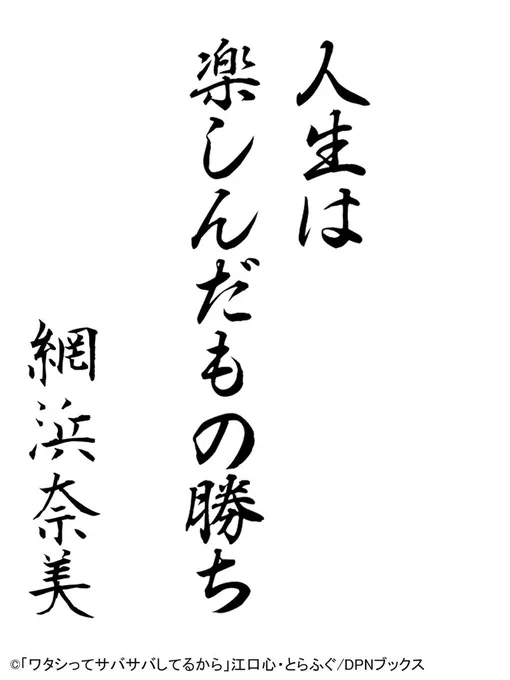 人生は
楽しんだもの勝ち
網浜奈美
©「ワタシってサバサバしてるから」江口心・とらふぐ/DPNブックス